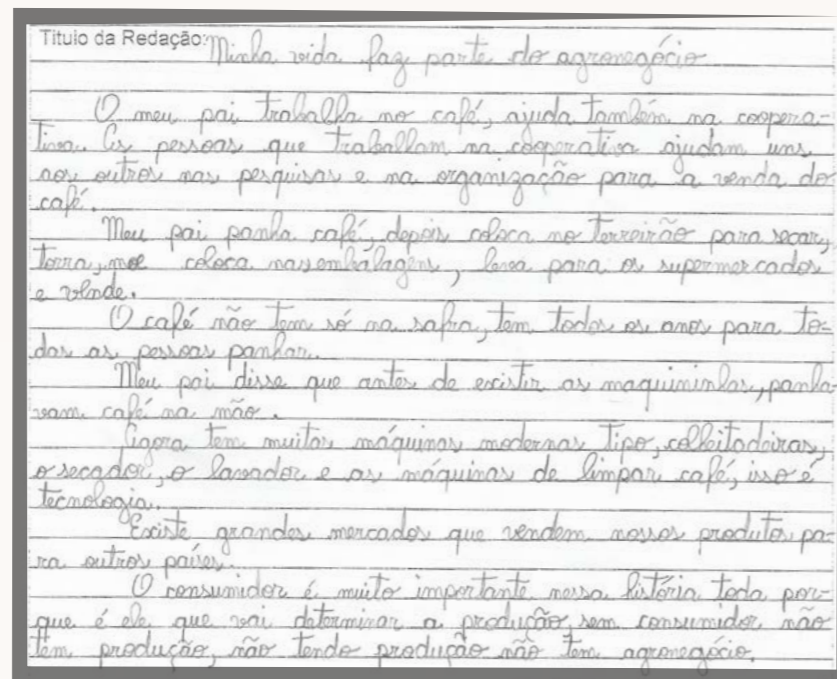 Titulo da Redação: Minha vida faz parte do agronegócio
O meu pai trabalha no café, ajuda também na coopera-
tiva. As pessoas que trabalham na cooperativa ajudam uns
aos outros nas pesquisas e na organização para a venda do
café.
Meu pai panha café, depois coloca no terreirão para secar,
torra, moe coloca nas embalagens, leva para os supermercados
e vende.
O café não tem só na safra, tem todos os anos para to-
das as pessoas panhar.
Meu pai disse que antes de existir as maquininhas, panha-
vam café na mão.
Agora tem muitas máquinas modernas tipo, colheitadeiras,
o secador, o lavador e as máquinas de limpar café, isso é
tecnologia.
Existe grandes mercados que vendem nossos produtos pa-
ra outros países.
O consumidor é muito importante nessa história toda por-
que é ele que vai determinar a produção, sem consumidor não
tem produção, não tendo produção não tem agronegócio.